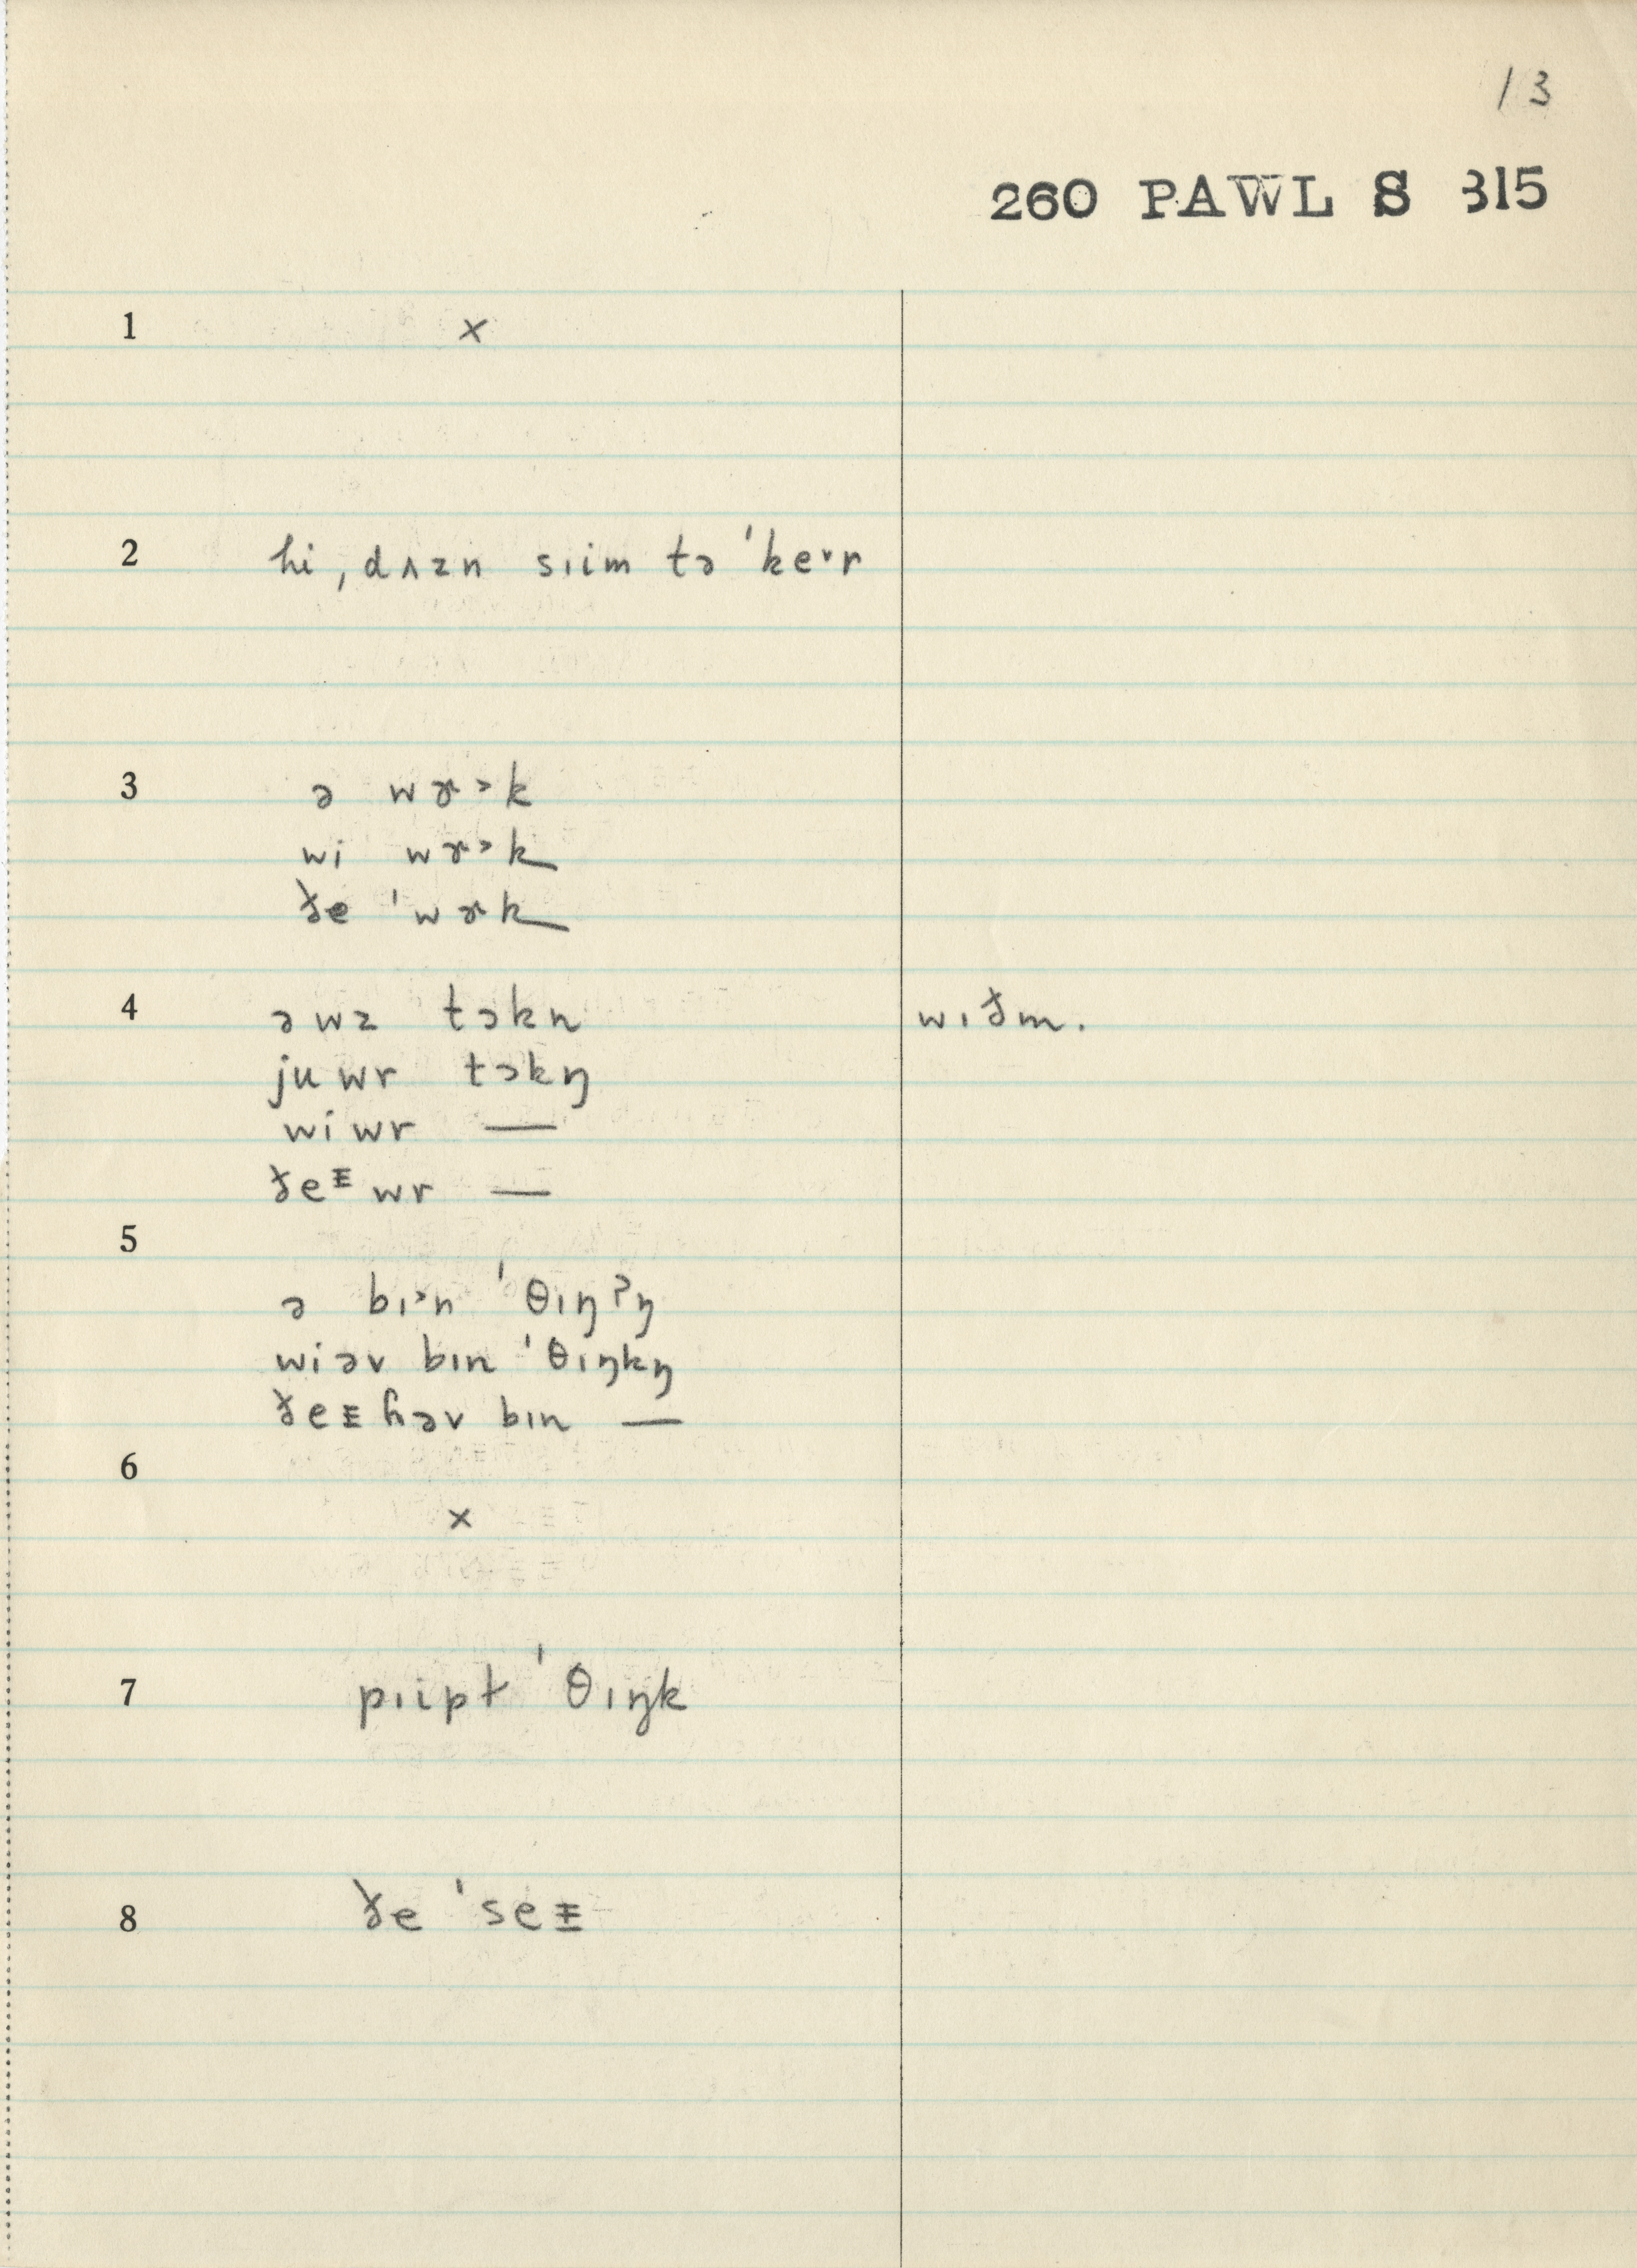 13
260 PAWL S 315
1 ×
2 hi ˌdʌzn sɪim tə ˈkeᵛr
3 ə wɝᵊk
wi wɝᵊk
ðe ˈwɝk
4 ə wz tɔkn wɪðm.
ju wr tɔkŋ
wi wr —
ðeᶤ wr —
5
ə bɪᵊn ˈθɪŋʔŋ
wi əv bɪn ˈθɪŋkŋ
ðeɨ ɦəv bɪn —
6
×
7 pɪipt ˈθɪŋk
8 ðe ˈseɨ